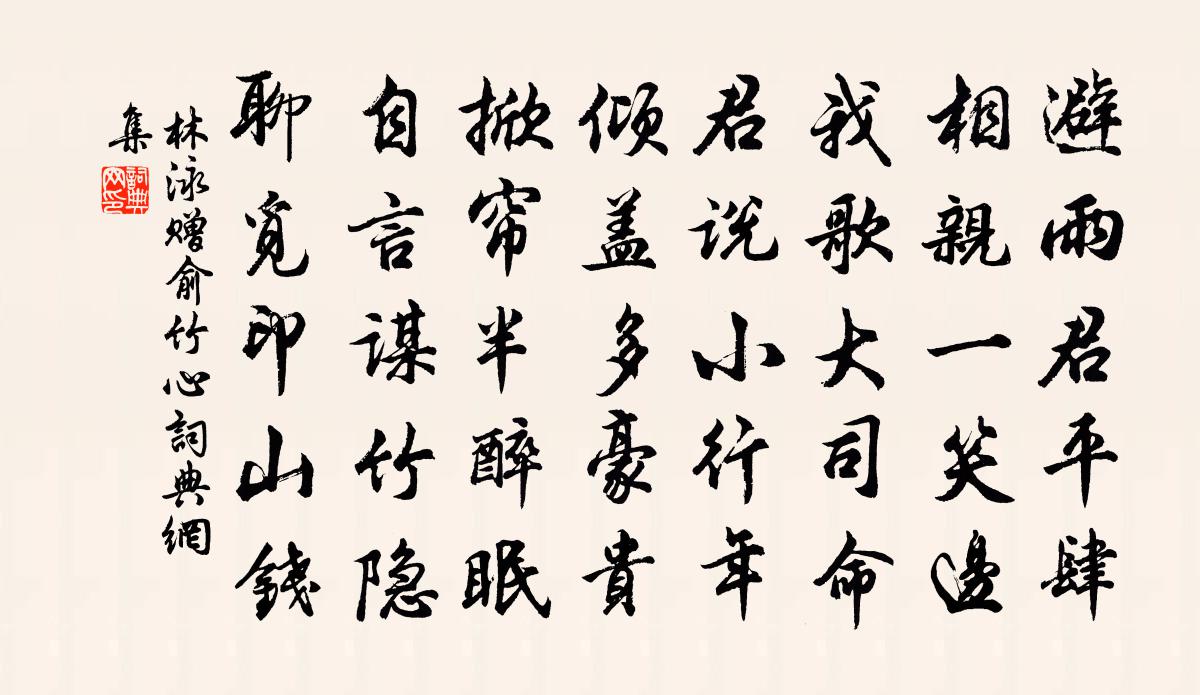 避雨君平肆
相親一笑邊
我歌大司命
君説小行年
傾盖多豪貴
掀帘半醉眠
自言謀竹隐
聊覓印山錢
林泳赠俞竹心詞典網
集
詞典
网印